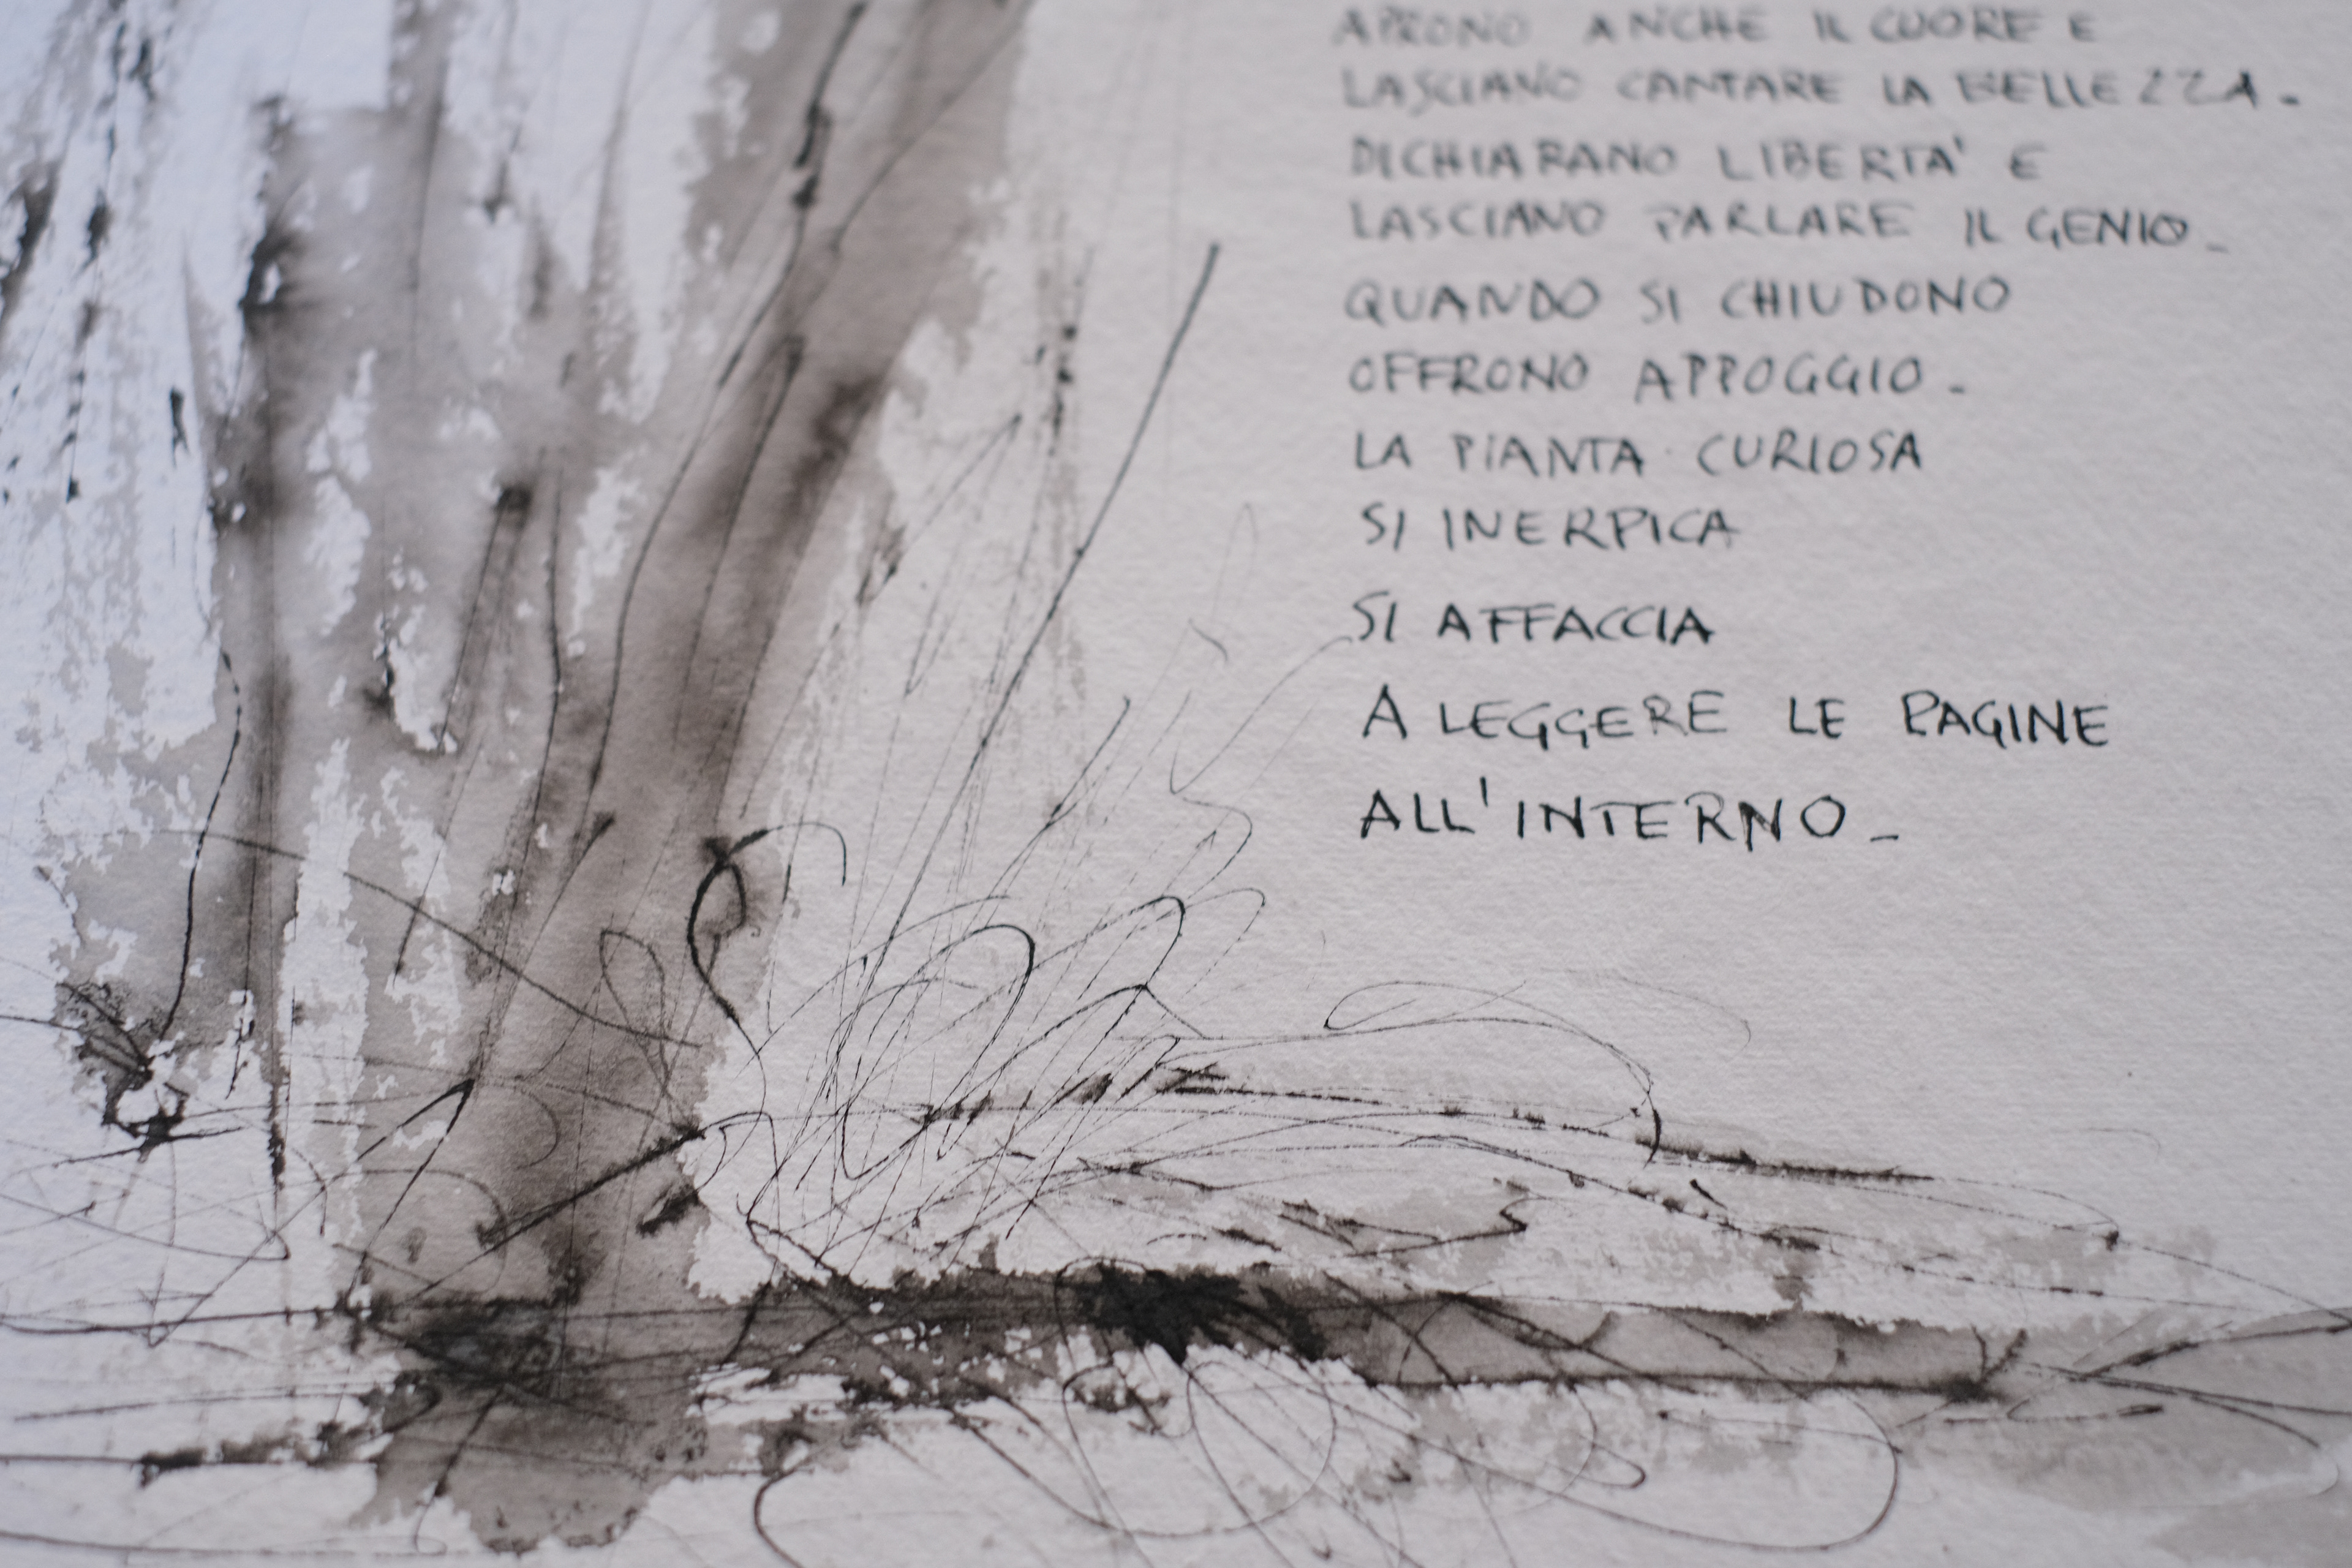 APRONO ANCHE IL CUORE E
LASCIANO CANTARE LA BELLEZZA.
DICHIARANO LIBERTA' E
LASCIANO PARLARE IL GENIO_
QUANDO SI CHIUDONO
OFFRONO APPOGGIO_
LA PIANTA CURIOSA
SI INERPICA
SI AFFACCIA
A LEGGERE LE PAGINE
ALL'INTERNO_